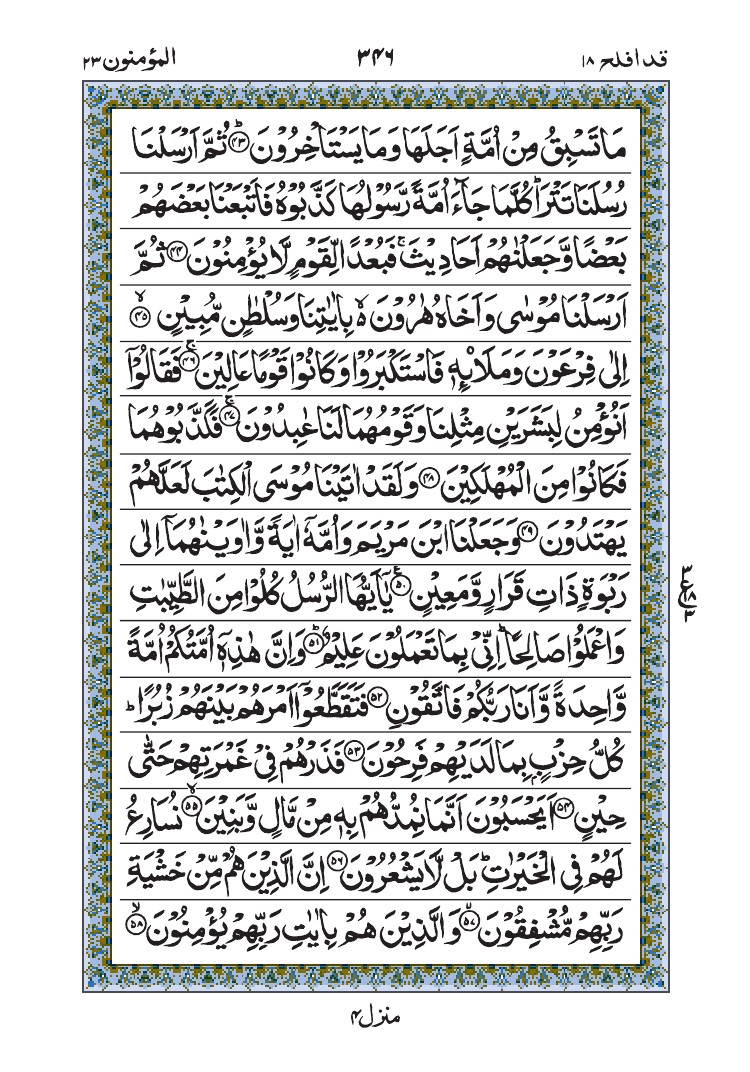 قدافلح ١٨ ٣٤٦ المؤمنون ٢٣
مَا تَسْبِقُ مِنْ اُمَّةٍ اَجَلَهَا وَمَا يَسْتَاْخِرُوْنَ ﴿۴۳﴾ ثُمَّ اَرْسَلْنَا
رُسُلَنَا تَتْرَا ؕ كُلَّمَا جَآءَ اُمَّةً رَّسُوْلُهَا كَذَّبُوْهُ فَاَتْبَعْنَا بَعْضَهُمْ
بَعْضًا وَّجَعَلْنٰهُمْ اَحَادِيْثَ ۚ فَبُعْدًا لِّقَوْمٍ لَّا يُؤْمِنُوْنَ ﴿۴۴﴾ ثُمَّ
اَرْسَلْنَا مُوْسٰى وَاَخَاهُ هٰرُوْنَ ۙ۬ بِاٰيٰتِنَا وَسُلْطٰنٍ مُّبِيْنٍ ﴿۴۵﴾ ۙ
اِلٰى فِرْعَوْنَ وَمَلَا۟ئِهٖ فَاسْتَكْبَرُوْا وَكَانُوْا قَوْمًا عَالِيْنَ ﴿۴۶﴾ ۚ فَقَالُوْۤا
اَنُؤْمِنُ لِبَشَرَيْنِ مِثْلِنَا وَقَوْمُهُمَا لَنَا عٰبِدُوْنَ ﴿۴۷﴾ ۚ فَكَذَّبُوْهُمَا
فَكَانُوْا مِنَ الْمُهْلَكِيْنَ ﴿۴۸﴾ وَلَقَدْ اٰتَيْنَا مُوْسَى الْكِتٰبَ لَعَلَّهُمْ
يَهْتَدُوْنَ ﴿۴۹﴾ وَجَعَلْنَا ابْنَ مَرْيَمَ وَاُمَّهٗۤ اٰيَةً وَّاٰوَيْنٰهُمَاۤ اِلٰى
رَبْوَةٍ ذَاتِ قَرَارٍ وَّمَعِيْنٍ ﴿۵۰﴾ يٰۤاَيُّهَا الرُّسُلُ كُلُوْا مِنَ الطَّيِّبٰتِ
وَاعْمَلُوْا صَالِحًا ؕ اِنِّىْ بِمَا تَعْمَلُوْنَ عَلِيْمٌ ﴿۵۱﴾ ؕ وَاِنَّ هٰذِهٖۤ اُمَّتُكُمْ اُمَّةً
وَّاحِدَةً وَّاَنَا رَبُّكُمْ فَاتَّقُوْنِ ﴿۵۲﴾ فَتَقَطَّعُوْۤا اَمْرَهُمْ بَيْنَهُمْ زُبُرًا ؕ
كُلُّ حِزْبٍۭ بِمَا لَدَيْهِمْ فَرِحُوْنَ ﴿۵۳﴾ فَذَرْهُمْ فِىْ غَمْرَتِهِمْ حَتّٰى
حِيْنٍ ﴿۵۴﴾ اَيَحْسَبُوْنَ اَنَّمَا نُمِدُّهُمْ بِهٖ مِنْ مَّالٍ وَّبَنِيْنَ ﴿۵۵﴾ ۙ نُسَارِعُ
لَهُمْ فِى الْخَيْرٰتِ ؕ بَلْ لَّا يَشْعُرُوْنَ ﴿۵۶﴾ اِنَّ الَّذِيْنَ هُمْ مِّنْ خَشْيَةِ
رَبِّهِمْ مُّشْفِقُوْنَ ﴿۵۷﴾ ۙ وَالَّذِيْنَ هُمْ بِاٰيٰتِ رَبِّهِمْ يُؤْمِنُوْنَ ﴿۵۸﴾ ۙ
٣
ع ١٨
٣
منزل ۴